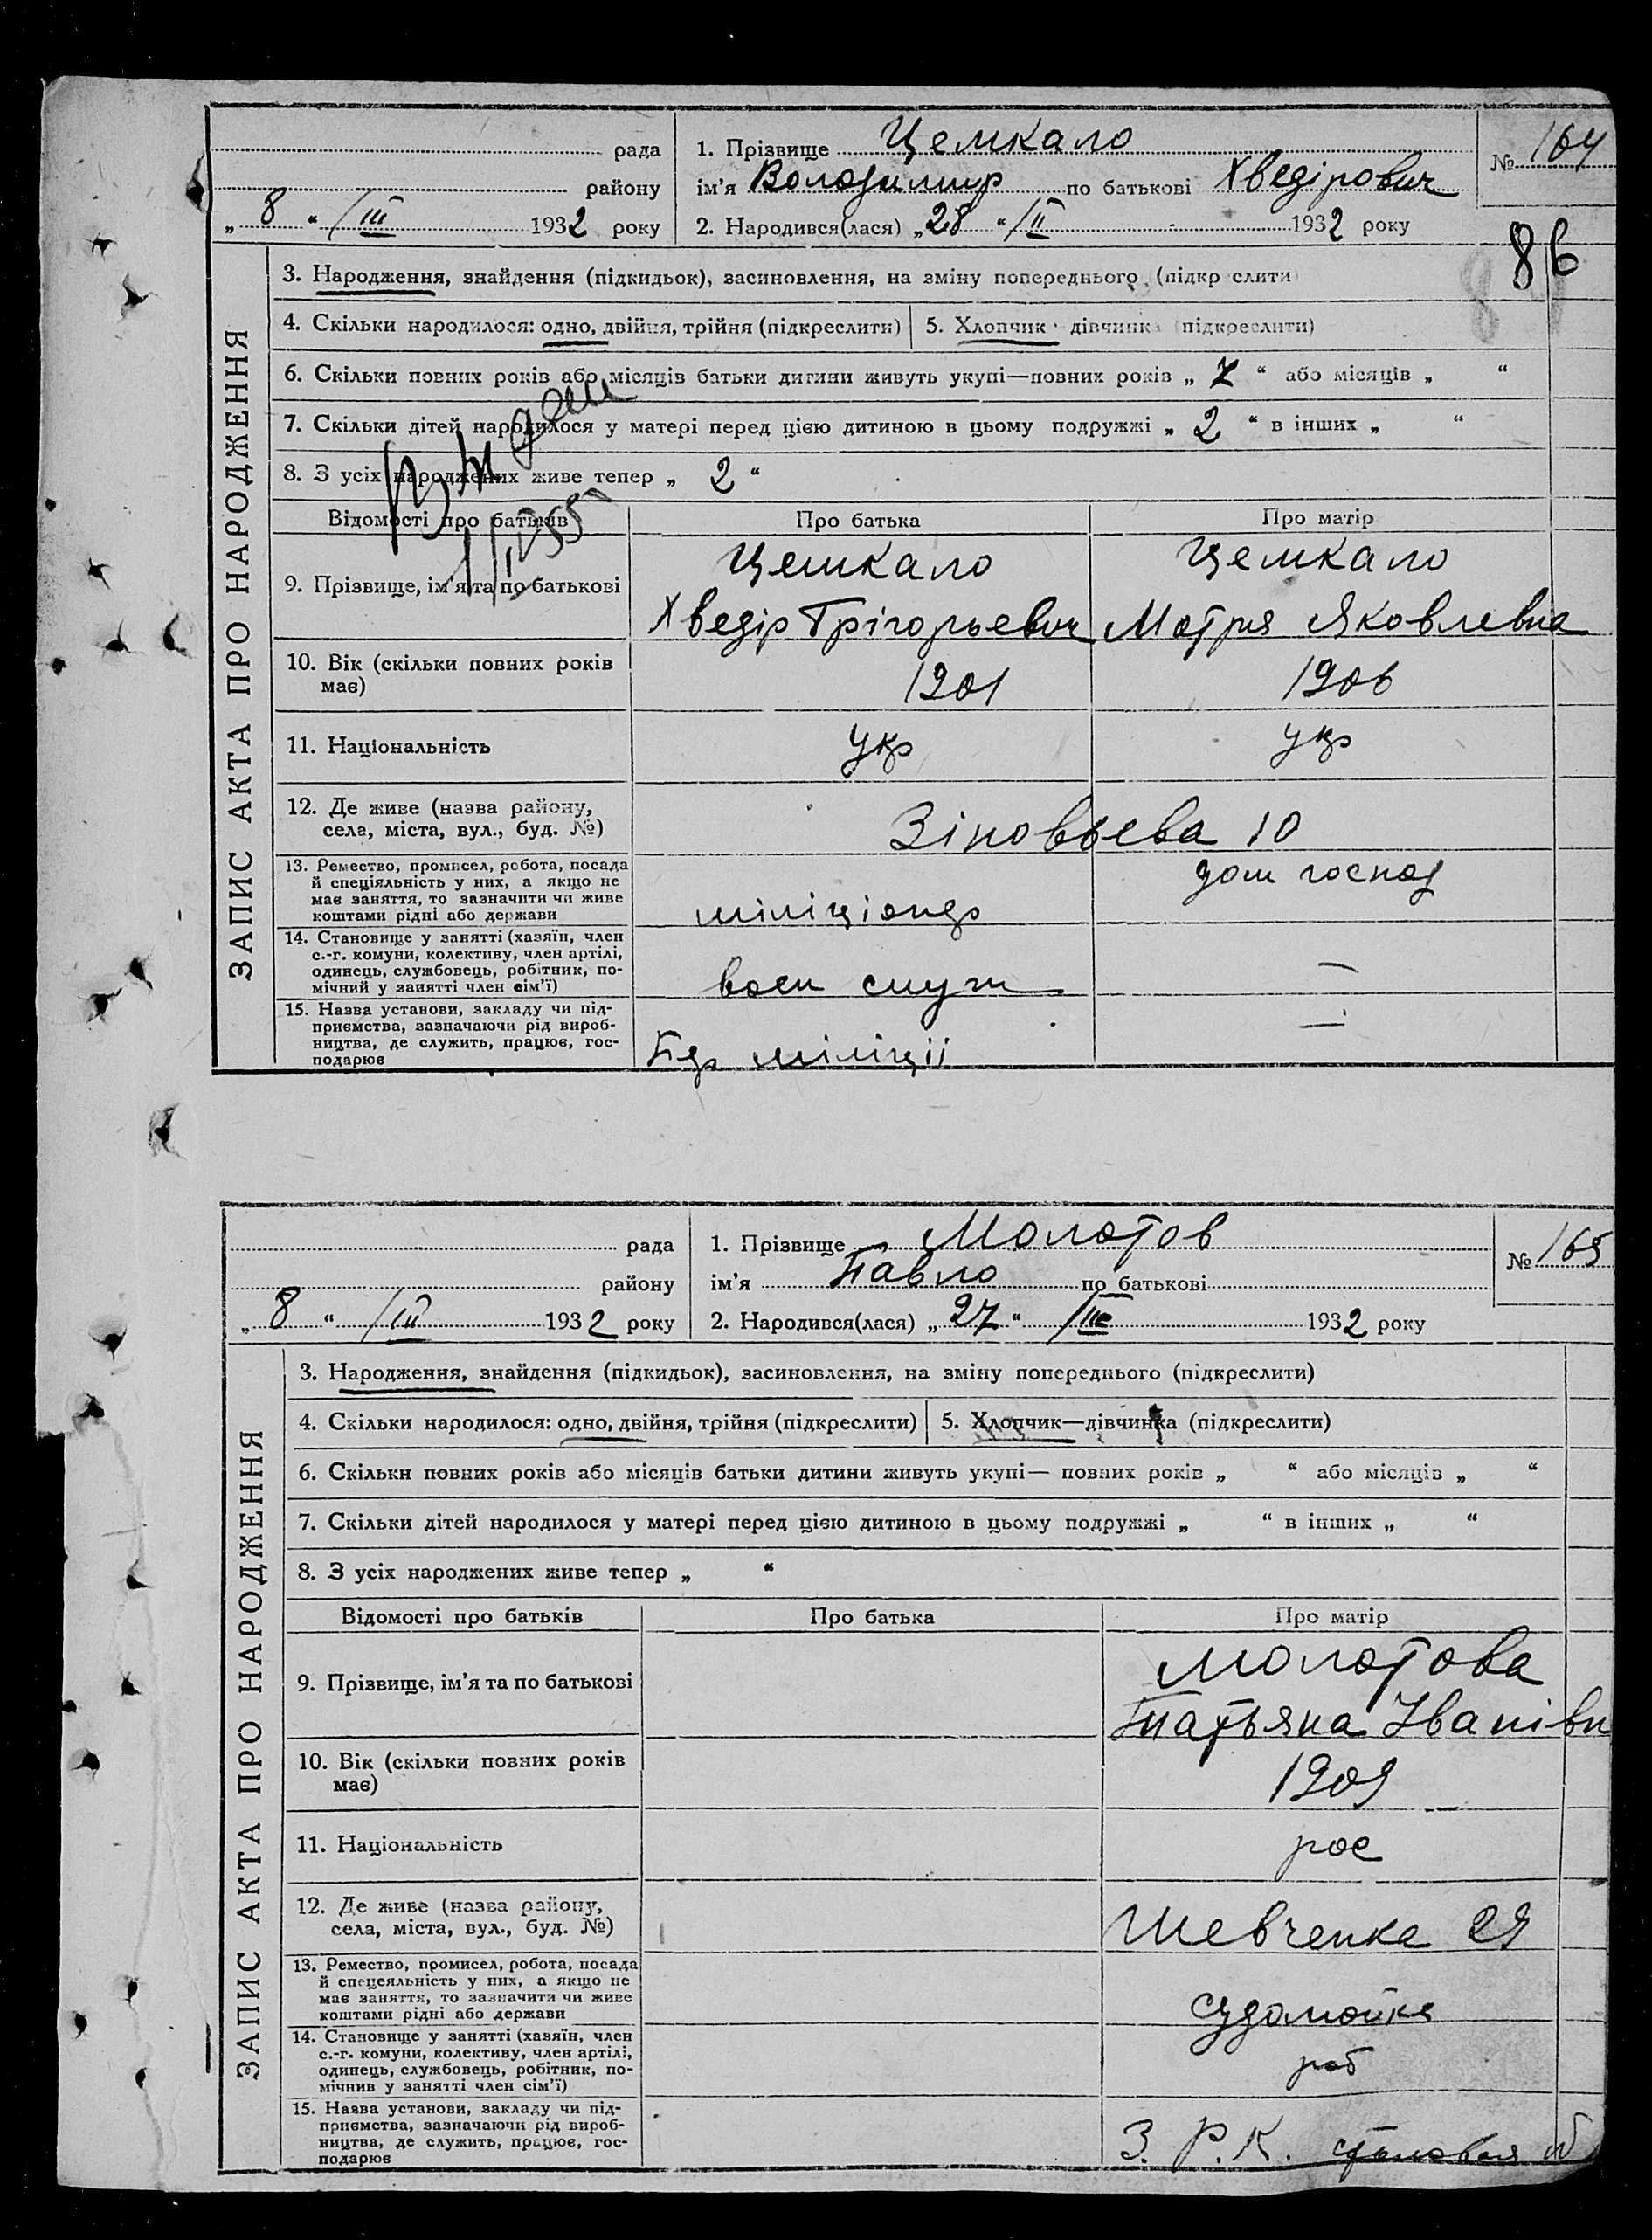 рада
району
„ 8 “ /III 1932 року
1. Прізвище Цемкало
ім'я Володимир по батькові Хведірович
2. Народився(лася) „28 “/II 1932 року
№ 164
86
ЗАПИС АКТА ПРО НАРОДЖЕННЯ
3. Народження, знайдення (підкидьок), засиновлення, на зміну попереднього (підкр слити
4. Скільки народилося: одно, двійня, трійня (підкреслити)
5. Хлопчик дівчинка (підкреслити)
6. Скільки повних років або місяців батьки дитини живуть укупі—повних років „ 7 “ або місяців „ “
7. Скільки дітей народилося у матері перед цією дитиною в цьому подружжі „ 2 “ в інших „ “
8. З усіх народжених живе тепер „ 2 “
Відомості про батьків Про батька Про матір
9. Прізвище, ім'я та по батькові
Цемкало
Хведір Грігорьевич
Цемкало
Мотря Яковлевна
10. Вік (скільки повних років
має)
1901
1906
11. Національність
укр
укр
12. Де живе (назва району,
села, міста, вул., буд. №)
Зіновьева 10
13. Ремество, промисел, робота, посада
й спеціяльність у них, а якщо не
має заняття, то зазначити чи живе
коштами рідні або держави
міліціонер
дом господ
14. Становище у занятті (хазяїн, член
с.-г. комуни, колективу, член артілі,
одинець, службовець, робітник, по-
мічний у занятті член сім'ї)
воен служ
—
15. Назва установи, закладу чи під-
приємства, зазначаючи рід вироб-
ництва, де служить, працює, гос-
подарює
міліції
—
рада
району
„ 8 “ /III 1932 року
1. Прізвище Молотов
ім'я Павло по батькові
2. Народився(лася) „ 27 “ /III 1932 року
№ 165
ЗАПИС АКТА ПРО НАРОДЖЕННЯ
3. Народження, знайдення (підкидьок), засиновлення, на зміну попереднього (підкреслити)
4. Скільки народилося: одно, двійня, трійня (підкреслити)
5. Хлопчик—дівчинка (підкреслити)
6. Скільки повних років або місяців батьки дитини живуть укупі— повних років „ “ або місяців „ “
7. Скільки дітей народилося у матері перед цією дитиною в цьому подружжі „ “ в інших „ “
8. З усіх народжених живе тепер „ “
Відомості про батьків Про батька Про матір
9. Прізвище, ім'я та по батькові
Молотова
Татьяна Іванівн
10. Вік (скільки повних років
має)
1909
11. Національність
рос
12. Де живе (назва району,
села, міста, вул., буд. №)
Шевченка 29
13. Ремество, промисел, робота, посада
й спецеяльність у них, а якщо не
має заняття, то зазначити чи живе
коштами рідні або держави
судомойка
14. Становище у занятті (хазяїн, член
с.-г. комуни, колективу, член артілі,
одинець, службовець, робітник, по-
мічнив у занятті член сім'ї)
роб
15. Назва установи, закладу чи під-
приємства, зазначаючи рід вироб-
ництва, де служить, працює, гос-
подарює
З. Р. К. столовая